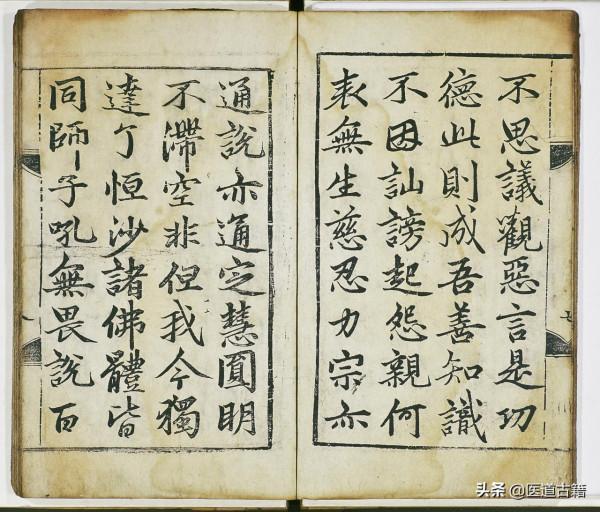 不思議觀惡言是功
德此則成吾善知識
不因訕謗起怨親何
表無生慈忍力宗亦
通說亦通定慧圓明
不滯空非但我今獨
達了恒沙諸佛體皆
同師子吼無畏說百
头条 @医道古籍